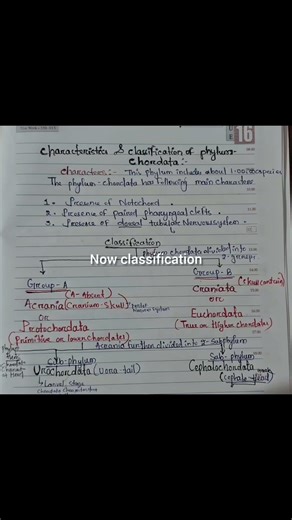 16
Characteristics & classification of phylum-
Chordata :-
Characters :- This phylum include about 1.00.000 species
The phylum-chordata has following main characters
1. Presence of Notochord.
2. Presence of paired pharyngeal clefts.
3. Presence of dorsal tubular Nervous system.
Classification
Phylum chordata divided into
2-groups
Now classification
Group-A
(A-Absent)
Acrania (Cranium-Skull)
OR
Protochordata
(Primitive or lower chordates)
Group-B
Craniata (skull contain)
OR
Euchordata
(True or Higher chordates)
Acrania further divided into 2-Subphylum
Sub-phylum
Urochordata (Uora-tail)
Larval stage
Sub-phylum
Cephalochordata
(cephalo-Head)